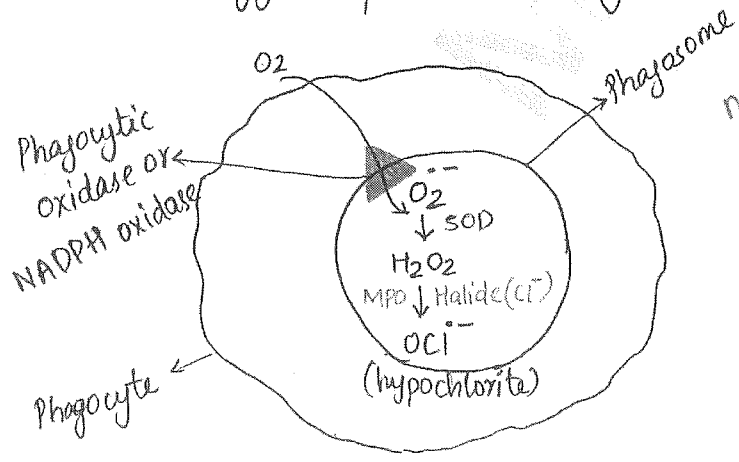 O2
Phagosome
Phagocytic
oxidase or
NADPH oxidase
O2•−
↓ SOD
H2O2
MPO ↓ Halide(Cl−)
OCl•−
(hypochlorite)
Phagocyte